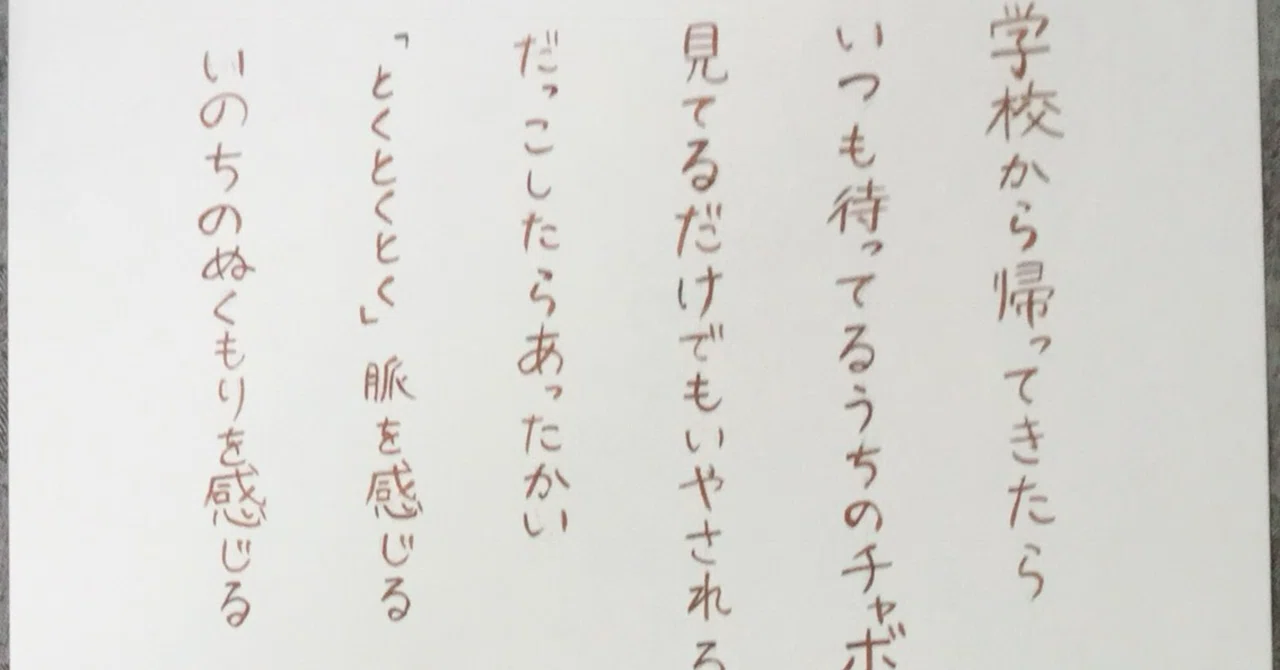 学校から帰ってきたら
いつも待ってるうちのチャボ
見てるだけでもいやされる
だっこしたらあったかい
「とくとくとく」脈を感じる
いのちのぬくもりを感じる